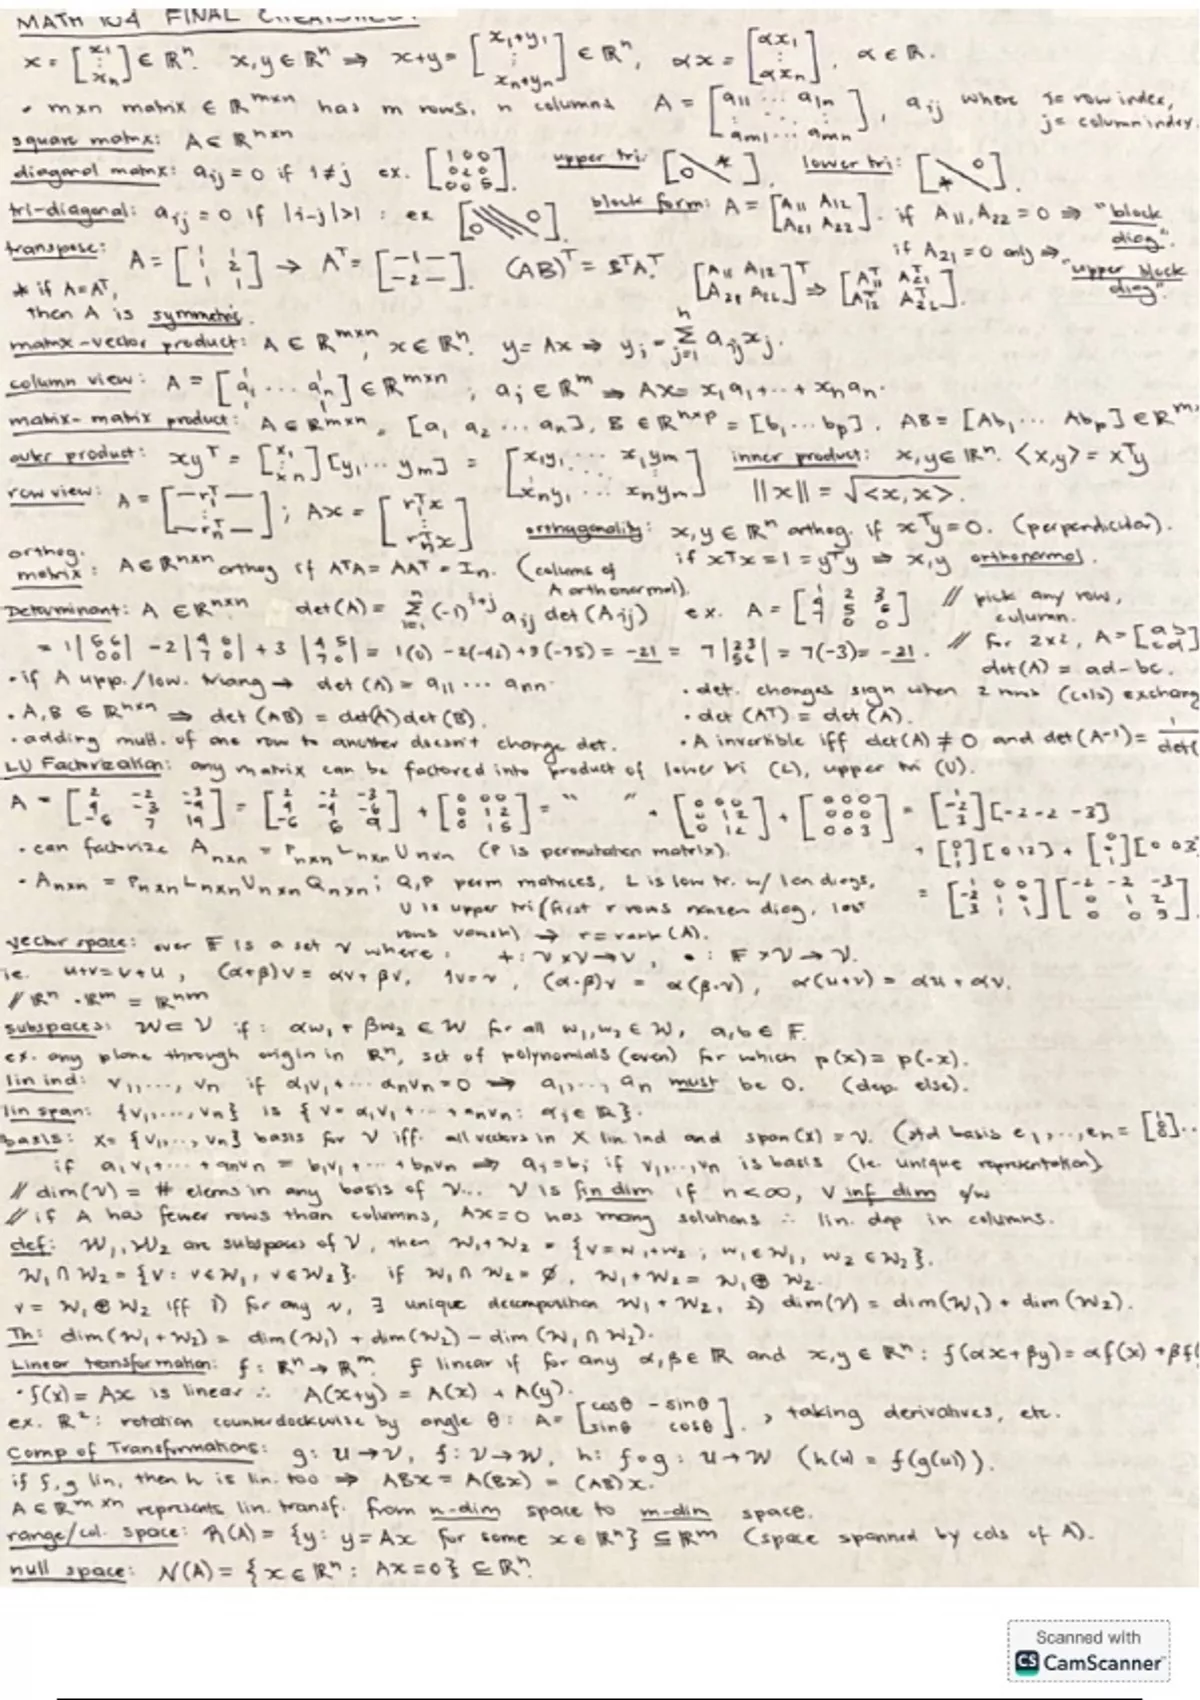 MATH 104 FINAL
x = [x₁ ⋮ xₙ] ∈ ℝⁿ. x,y ∈ ℝⁿ ⇒ x+y = [x₁+y₁ ⋮ xₙ+yₙ] ∈ ℝⁿ, αx = [αx₁ ⋮ αxₙ], α ∈ ℝ.
• mxn matrix ∈ ℝᵐˣⁿ has m rows, n columns A = [a₁₁ ⋯ a₁ₙ ; aₘ₁ ⋯ aₘₙ], aᵢⱼ where i = row index,
j = column index.
square matrix: A ∈ ℝⁿˣⁿ
diagonal matrix: aᵢⱼ = 0 if i≠j ex. [1 0 0 ; 0 2 0 ; 0 0 5]. upper tri: [0 \ *]. lower tri: [* \ 0].
tri-diagonal: aᵢⱼ = 0 if |i-j|>1 : ex [0 \\\ 0]. block form: A = [A₁₁ A₁₂ ; A₂₁ A₂₂]. if A₁₁, A₂₂ = 0 ⇒ "block diag".
transpose: A = [1 1 ; 1 2 ; 1 1] → Aᵀ = [-1- ; -2-]. (AB)ᵀ = BᵀAᵀ. [A₁₁ A₁₂ ; A₂₁ A₂₂]ᵀ ⇒ [A₁₁ᵀ A₂₁ᵀ ; A₁₂ᵀ A₂₂ᵀ]. if A₂₁ = 0 only ⇒ "upper block diag".
* if A=Aᵀ,
then A is symmetric.
matrix-vector product: A ∈ ℝᵐˣⁿ, x ∈ ℝⁿ. y = Ax ⇒ yᵢ = Σⱼ₌₁ⁿ aᵢⱼxⱼ.
column view: A = [a₁ ⋯ aₙ] ∈ ℝᵐˣⁿ ; aⱼ ∈ ℝᵐ ⇒ Ax = x₁a₁ + ⋯ + xₙaₙ.
matrix-matrix product: A ∈ ℝᵐˣⁿ = [a₁ a₂ ⋯ aₙ], B ∈ ℝⁿˣᵖ = [b₁ ⋯ bₚ]. AB = [Ab₁ ⋯ Abₚ] ∈ ℝᵐ
outer product: xyᵀ = [x₁ ⋮ xₙ][y₁ ⋯ yₘ] = [x₁y₁ ⋯ x₁yₘ ; xₙy₁ ⋯ xₙyₘ] inner product: x,y ∈ ℝⁿ. <x,y> = xᵀy
||x|| = √<x,x>.
row view: A = [-r₁ᵀ- ; -rₙᵀ-] ; Ax = [r₁ᵀx ⋮ rₙᵀx] orthogonality: x,y ∈ ℝⁿ orthog. if xᵀy = 0. (perpendicular).
if xᵀx = 1 = yᵀy ⇒ x,y orthonormal.
orthog. matrix: A ∈ ℝⁿˣⁿ orthog if AᵀA = AAᵀ = Iₙ. (columns of A orthonormal).
Determinant: A ∈ ℝⁿˣⁿ det(A) = Σ (-1)ⁱ⁺ʲ aᵢⱼ det(Aᵢⱼ) ex. A = [1 2 3 ; 4 5 6 ; 7 0 0] // pick any row, column.
= 1|5 6 ; 0 0| - 2|4 6 ; 7 0| + 3|4 5 ; 7 0| = 1(0) - 2(-42) + 3(-35) = -21 = 7|2 3 ; 5 6| = 7(-3) = -21. // For 2x2, A = [a b ; c d]
det(A) = ad - bc.
• if A upp./low. triang → det(A) = a₁₁ ⋯ aₙₙ • det. changes sign when 2 rows (cols) exchang
• A,B ∈ ℝⁿˣⁿ ⇒ det(AB) = det(A)det(B). • det(Aᵀ) = det(A).
• adding mult. of one row to another doesn't change det. • A invertible iff det(A) ≠ 0 and det(A⁻¹) = 1/det(
LU Factorization: any matrix can be factored into product of lower tri (L), upper tri (U).
• can factorize Aₙₓₙ = Pₙₓₙ Lₙₓₙ Uₙₓₙ (P is permutation matrix).
• Aₙₓₙ = Pₙₓₙ Lₙₓₙ Uₙₓₙ Qₙₓₙ; Q,P perm matrices, L is low tr. w/ 1 on diags,
U is upper tri (first r rows nonzero diag, last
rows vanish) → r = rank(A).
vector space: over F is a set V where: + : V×V → V, • : F×V → V.
ie. u+v = v+u, (α+β)v = αv + βv, 1v = v, (α·β)v = α(β·v), α(u+v) = αu + αv.
// ℝⁿ · ℝᵐ = ℝⁿᵐ
subspaces: W ⊂ V if: αw₁ + βw₂ ∈ W for all w₁,w₂ ∈ W, a,b ∈ F.
ex. any plane through origin in ℝⁿ, set of polynomials (even) for which p(x) = p(-x).
lin ind: v₁,…, vₙ if α₁v₁ + ⋯ αₙvₙ = 0 ⇒ a₁,…, aₙ must be 0. (dep. else).
lin span: {v₁,…,vₙ} is {v = α₁v₁ + ⋯ + αₙvₙ : αⱼ ∈ ℝ}.
basis: X = {v₁,…,vₙ} basis for V iff. all vectors in X lin ind and span(x) = V. (std basis e₁,…,eₙ = [1 0 0]…
if a₁v₁ + ⋯ + aₙvₙ = b₁v₁ + ⋯ + bₙvₙ ⇒ aⱼ = bⱼ if v₁,…,vₙ is basis (ie. unique representation)
// dim(V) = # elems in any basis of V... V is fin dim if n<∞, V inf dim o/w
// if A has fewer rows than columns, Ax=0 has many solutions ∴ lin. dep in columns.
def: W₁, W₂ are subspaces of V, then W₁+W₂ = {v = w₁+w₂ ; w₁ ∈ W₁, w₂ ∈ W₂}.
W₁ ∩ W₂ = {v : v ∈ W₁, v ∈ W₂}. if W₁ ∩ W₂ = ∅, W₁+W₂ = W₁ ⊕ W₂.
V = W₁ ⊕ W₂ iff 1) for any v, ∃ unique decomposition w₁ + w₂, 2) dim(V) = dim(W₁) + dim(W₂).
Th: dim(W₁+W₂) = dim(W₁) + dim(W₂) - dim(W₁ ∩ W₂).
Linear transformation: f : ℝⁿ → ℝᵐ f linear if for any α,β ∈ ℝ and x,y ∈ ℝⁿ : f(αx+βy) = αf(x) + βf(
• f(x) = Ax is linear ∴ A(x+y) = A(x) + A(y).
ex. ℝ² : rotation counterclockwise by angle θ : A = [cosθ -sinθ ; sinθ cosθ]. , taking derivatives, etc.
Comp of Transformations: g: U → V, f: V → W, h: f∘g : U → W (h(u) = f(g(u))).
if f,g lin, then h is lin. too ⇒ ABx = A(Bx) = (AB)x.
A ∈ ℝᵐˣⁿ represents lin. transf. from n-dim space to m-dim space.
range/col. space: R(A) = {y : y = Ax for some x ∈ ℝⁿ} ⊆ ℝᵐ (space spanned by cols of A).
null space: N(A) = {x ∈ ℝⁿ : Ax = 0} ⊆ ℝⁿ.
Scanned with
CS CamScanner